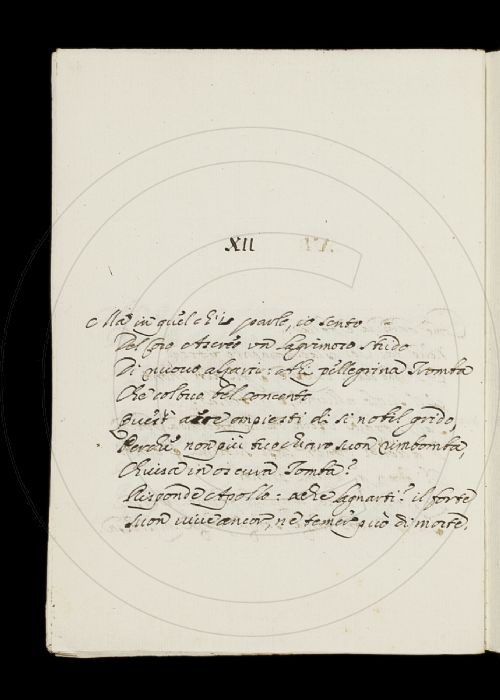 XII
Ma in quel ch'io parlo, io sento
Del pro Ateneo un lagrimoso strido
Di nuovo alzarsi: ahi pellegrina Tromba
Che col tuo bel concento
Quest' aere empiesti di sì nobil grido,
Perché non più tuo chiaro suon rimbomba,
Chiusa in oscura Tomba?
Risponde Apollo: a che lagnarti? il forte
Suon vive ancor, né temer può di morte.